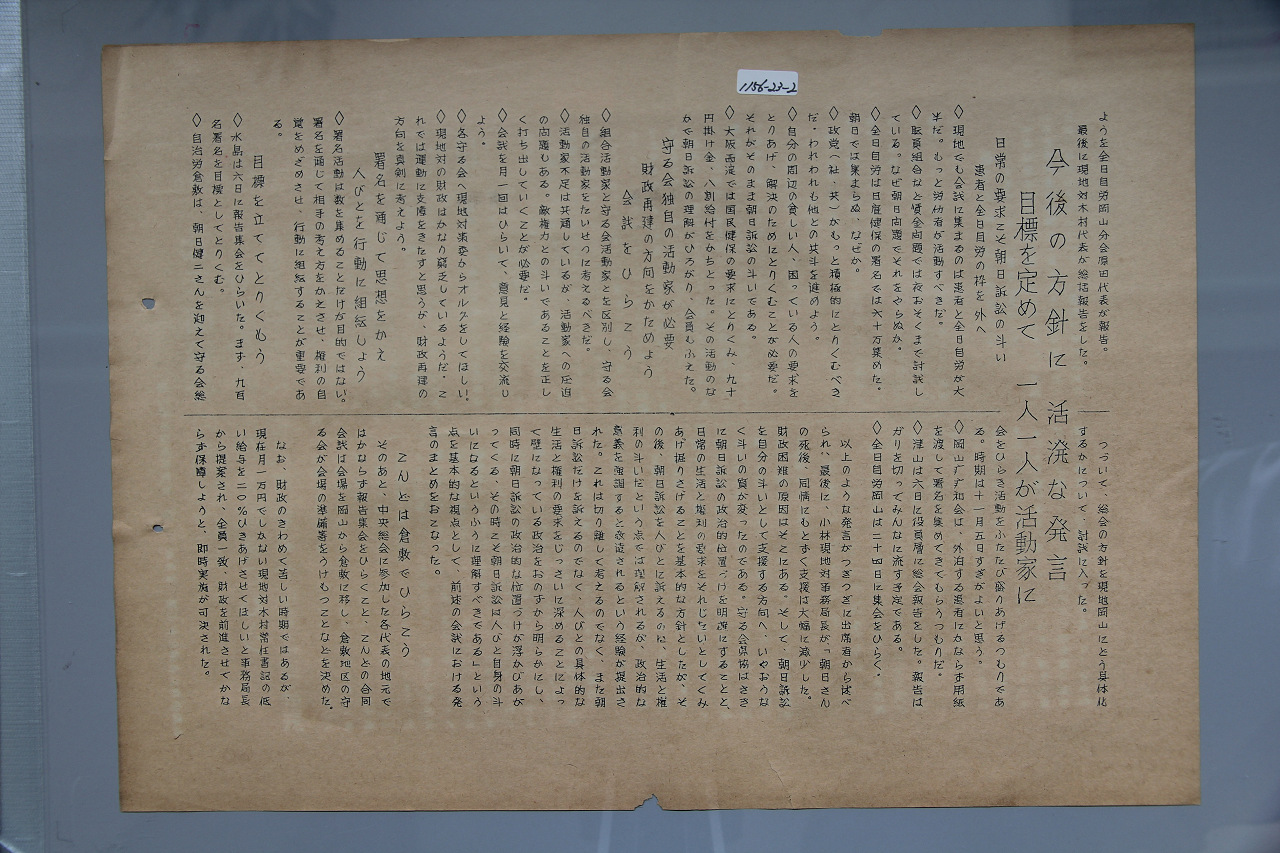 1156-23-2
ようを全日自労岡山分会原田代表が報告。
最後に現地対木村代表が総括報告をした。
今後の方針に活溌な発言
目標を定めて 一人一人が活動家に
日常の要求こそ朝日訴訟の斗い
患者と全日自労の枠を外へ
◇現地でも会議に集まるのは患者と全日自労が大
半だ。もっと労仂者が活動すべきだ。
◇職員組合など賃金問題では夜おそくまで討議し
ている。なぜ朝日問題でそれをやらぬか。
◇全日自労は日雇健保の署名では六十万集めた。
朝日では集まらぬ、なぜか。
◇政党へ社、共)がもっと積極的にとりくむべき
だ。われわれも他との共斗を進めよう。
◇自分の周辺の貧しい人、困っている人の要求を
とりあげ、解決のためにとりくむことが必要だ。
それがそのまま朝日訴訟の斗いである。
◇大阪西淀では国民健保の要求にとりくみ、九十
円掛け金、八割給付をかちとった。その活動のな
かで朝日訴訟の理解がひろがり、会員もふえた。
守る会独自の活動家が必要
財政再建の方向をかためよう
会議をひらこう
◇組合活動家と守る会活動家とを区別し、守る会
独自の活動家をたいせつに考えるべきだ。
◇活動家不足は共通しているが、活動家への圧迫
の問題もある。敵権力との斗いであることを正し
く打ち出していくことが必要だ。
◇会議を月一回はひらいて、意見と経験を交流し
よう。
◇各守る会へ現地対策委からオルグをしてほしい。
◇現地対の財政はかなり窮乏しているようだ。こ
れでは運動に支障をきたすと思うが、財政再建の
方向を真剣に考えよう。
署名を通じて思想をかえ
人びとを行動に組織しよう
◇署名活動は数を集めることだけが目的ではない。
署名を通じて相手の考え方をかえさせ、権利の自
覚をめざめさせ、行動に組織することが重要であ
る。
目標を立ててとりくもう
◇水島は六日に報告集会をひらいた。まず、九百
名署名を目標としてとりくむ。
◇自治労倉敷は、朝日健二さんを迎えて守る会総
つづいて、総会の方針を現地岡山にどう具体化
するかについて、討議に入った。
会をひらき活動をふたたび盛りあげるつもりであ
る。時期は十一月五日すぎがよいと思う。
◇岡山ガガ知会は、外泊する患者にかならず用紙
を渡して署名を集めてきてもらうつもりだ。
◇津山は六日に役員層に総会報告をした。報告は
がりを切ってみんなに流す予定である。
◇全日自労岡山は二十四日に集会をひらく。
以上のような発言がつぎつぎに出席者から述べ
られ、最後に、小林現地対事務局長が「朝日さん
の死後、同情にもとずく支援は大幅に減少した。
財政困難の原因はそこにある。そして、朝日訴訟
を自分の斗いとして支援する方向へ、いやおうな
く斗いの質が変ったのである。守る会県協はささ
に朝日訴訟の政治的位置づけを明確にすることと、
日常の生活と権利の要求をそれじたいとしてくみ
あげ掘りさげることを基本的な方針としたが、そ
の後、朝日訴訟を人びとに訴えるのに、生活と権
利の斗いだという点では理解されるが、政治的な
意義を強調すると敬遠されるという経験が提出さ
れた。これは切り離して考えるのでなく、また朝
日訴訟だけを訴えるのでなく、人びとの具体的な
生活と権利の要求をじっさいに深めることによっ
て壁になっている政治をおのずから明らかにし、
同時に朝日訴訟の政治的な位置づけが浮かびあが
ってくる、その時こそ朝日訴訟は人びと自身の斗
いになるというふうに理解すべきである」という
点を基本的な視点として、前述の会議における発
言のまとめをおこなった。
こんどは倉敷でひらこう
そのあと、中央総会に参加した各代表の地元で
はかならず報告集会をひらくこと、こんどの合同
会議は会場を岡山から倉敷に移し、倉敷地区の守
る会が会場の準備等をうけもつことなどを決めた。
なお、財政のきわめて苦しい時期ではあるが、
現在月一万円でしかない現地対木村常任書記の低
い給与を二〇%ひきあげさせてほしいと事務局長
から提案され、全員一致、財政を前進させてかな
らず保障しようと、即時実施が可決された。